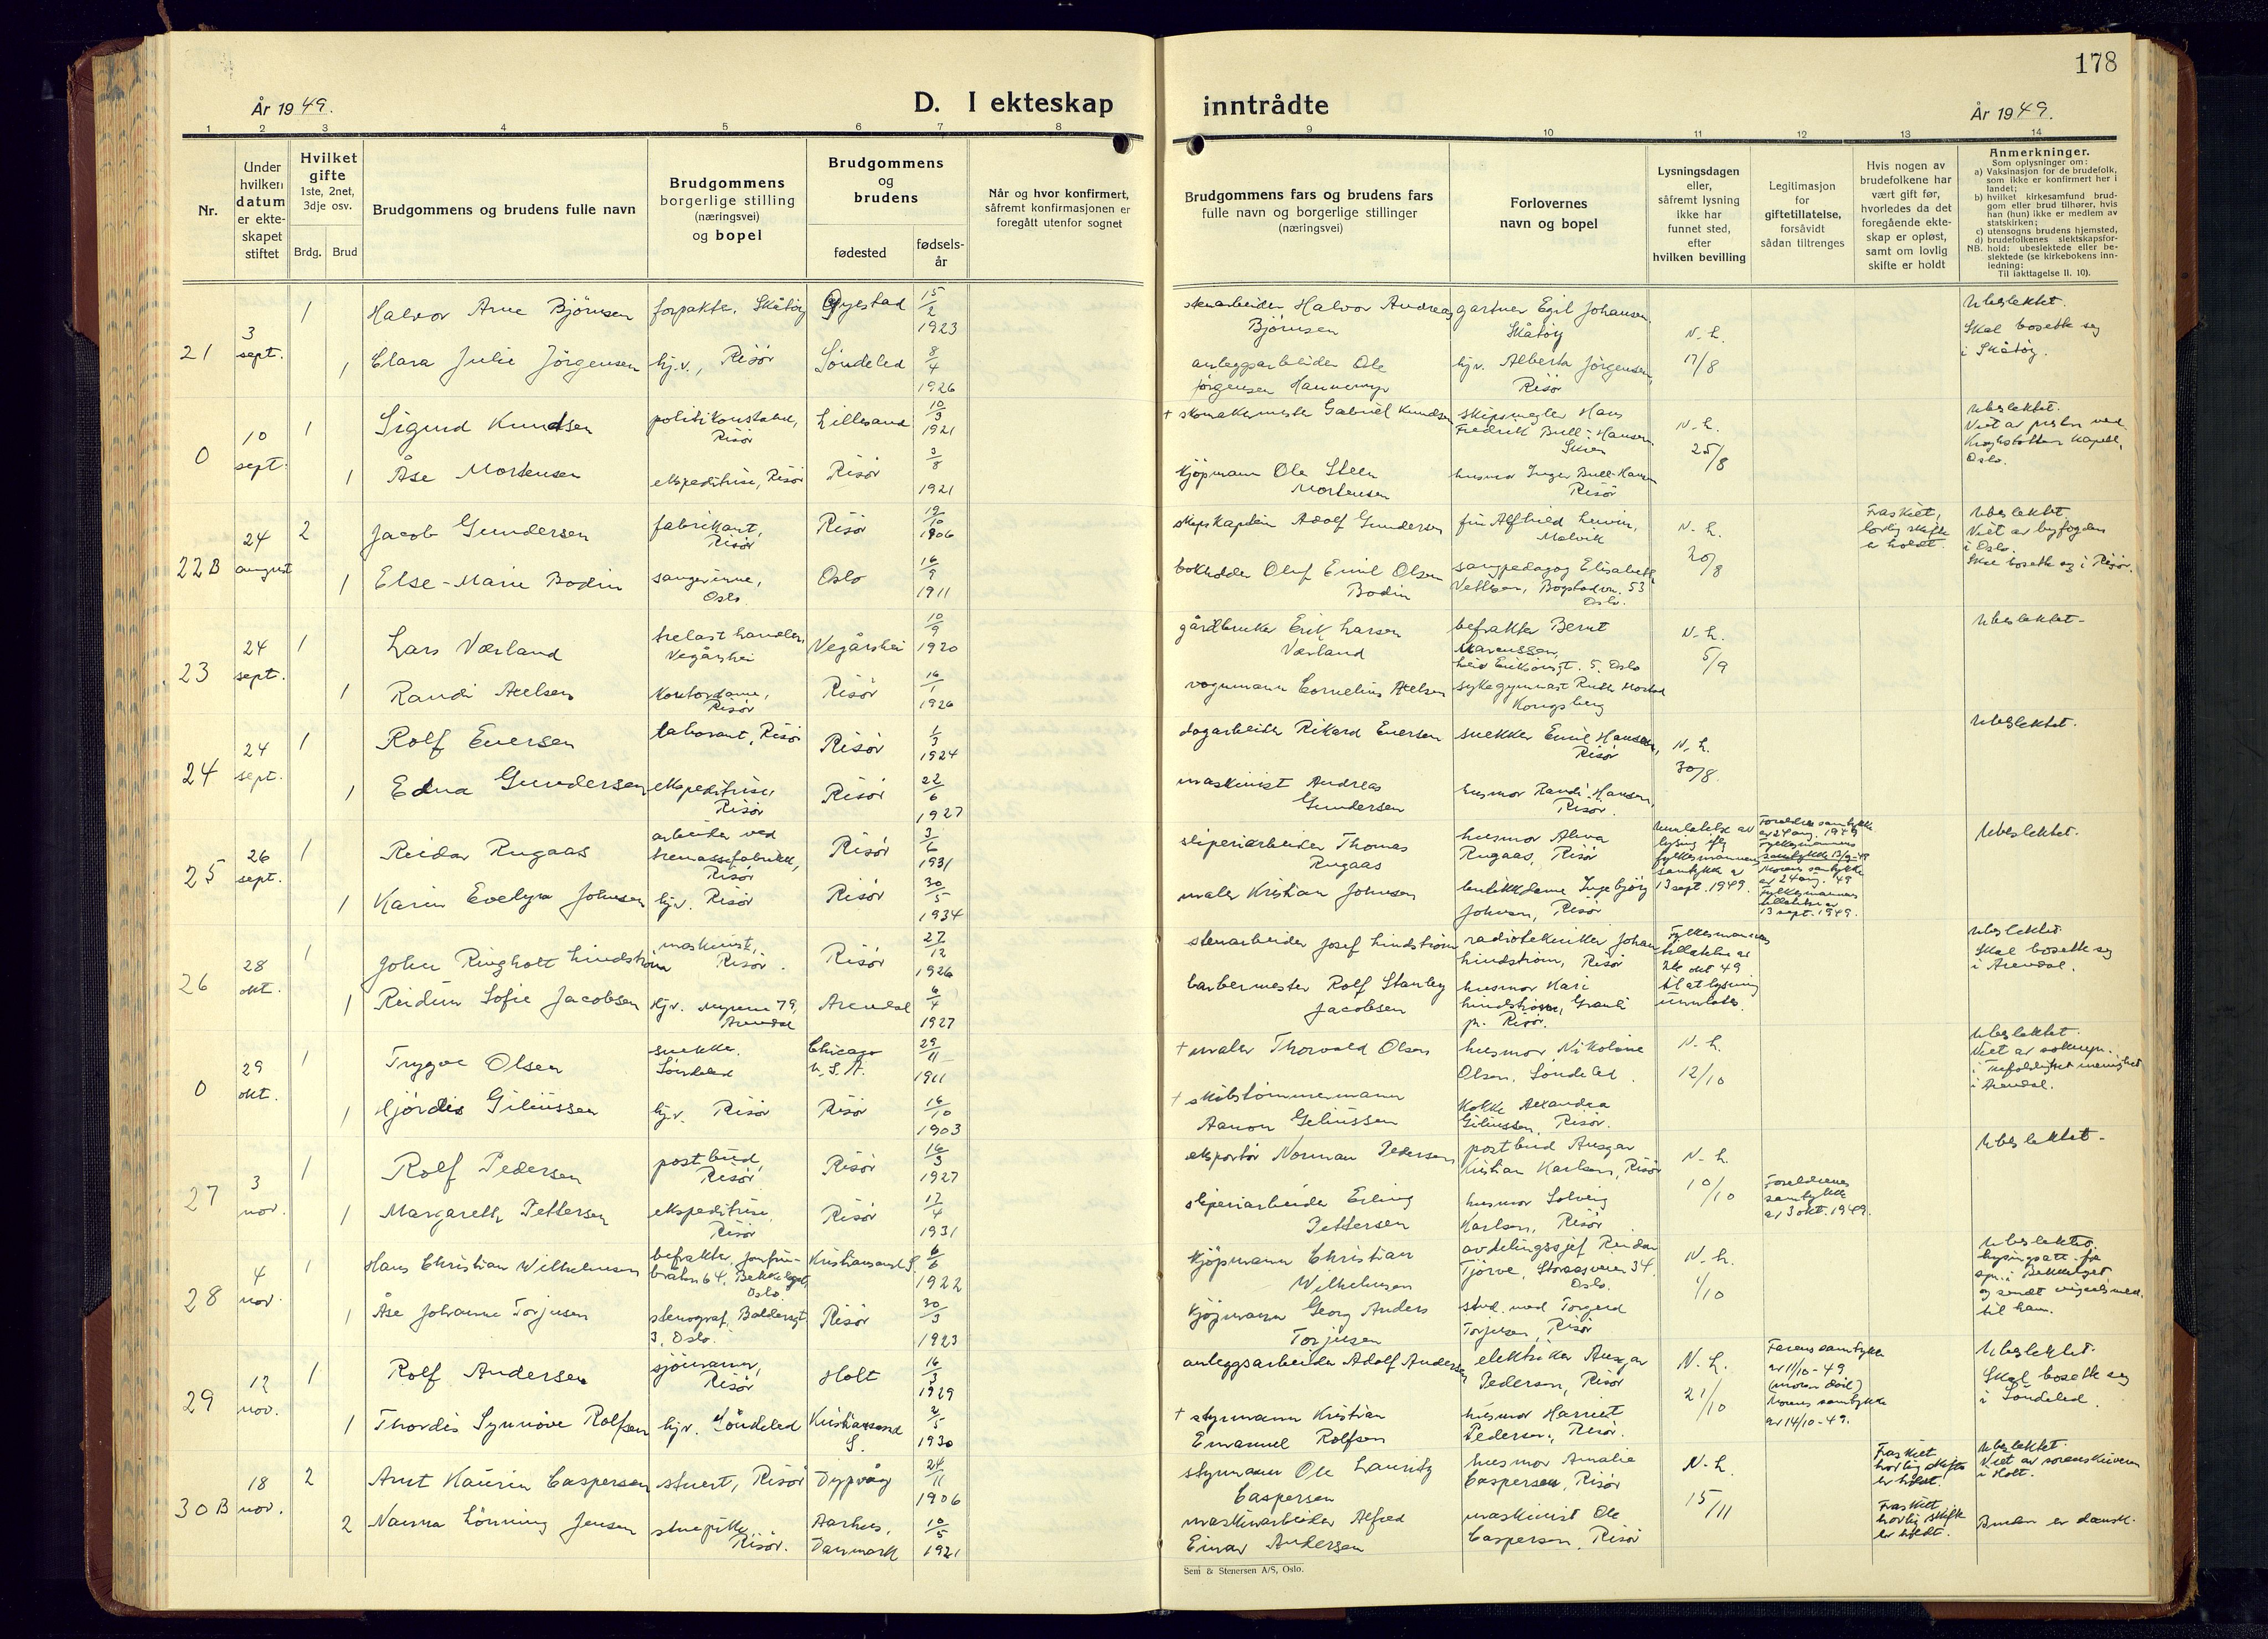 178
År 1949.
D. I ekteskap
inntrådte
År 1949.
1 2 3 4 5 6 7 8 9 10 11 12 13 14
Nr.
Under
hvilken
datum
er ekte-
skapet
stiftet
Hvilket
gifte
1ste, 2net,
3dje osv.
Brdg. Brud
Brudgommens og brudens fulle navn
Brudgommens
borgerlige stilling
(næringsvei)
og bopel
Brudgommens
og
brudens
fødested
fødsels-
år
Når og hvor konfirmert,
såfremt konfirmasjonen er
foregått utenfor sognet
Brudgommens fars og brudens fars
fulle navn og borgerlige stillinger
(næringsvei)
Forlovernes
navn og bopel
Lysningsdagen
eller,
såfremt lysning
ikke har
funnet sted,
efter
hvilken bevilling
Legitimasjon
for
giftetillatelse,
forsåvidt
sådan tiltrenges
Hvis nogen av
brudefolkene har
vært gift før,
hvorledes da det
foregående ekte-
skap er opløst,
samt om lovlig
skifte er holdt
Anmerkninger.
Som oplysninger om:
a) Vaksinasjon for de brudefolk,
som ikke er konfirmert her i
landet;
b) hvilket kirkesamfund brud-
gom eller brud tilhører, hvis
han (hun) ikke er medlem av
statskirken;
c) utensogns brudens hjemsted,
d) brudefolkenes slektskapsfor-
NB. hold: ubeslektede eller be-
slektede (se kirkebokens inn-
ledning:
Til iakttagelse II. 10).
21
3
sept.
1
Halvor Arne Bjørnsen
forpakter, Skåtøy
Gjerstad
15/2
1923
stenarbeider Halvor Andreas
Bjørnsen
gartner Egil Johansen,
Skåtøy
N. L.
17/8
Ubeslektet.
Skal bosette seg
i Skåtøy.
1
Clara Julie Jørgensen
hj.v., Risør
Søndeled
8/4
1926
anleggsarbeider Ole
Jørgensen
hjv. Alberta Jørgensen,
Risør
0
10
sept.
1
Sigurd Knudsen
politikonstabel,
Risør
Lillesand
10/3
1921
+ skomakermester Gabriel Knudsen
skipsmegler Hans
Fredrik Bull-Hansen
Skien
N. L.
25/8
Ubeslektet.
Viet av presten ved
kapell,
Oslo.
1
Åse Mortensen
ekspeditrise, Risør
Risør
3/8
1921
Kjøpmann Ole Steen
Mortensen
husmor Inger Bull-Hansen
Risør
22B
24
august
2
Jacob Gundersen
fabrikant,
Risør
Risør
12/10
1906
skipskaptein Adolf Gundersen
fru Alfhild
Malvik
N. L.
20/8
Fraskilt,
lovlig skifte
er holdt.
Ubeslektet.
Viet av byfogden
i Oslo.
Skal bosette seg i Risør.
1
Else-Marie Bodin
sangerinne,
Oslo
Oslo
16/9
1911
bokholder Oluf Emil Olsen
Bodin
sangpedagog Elisabeth
Bogstadvn. 53
Oslo.
23
24
sept.
1
Lars Værland
trelasthandler,
Vegårshei
Vegårshei
10/9
1920
gårdbruker Erik Larsen
Værland
befrakter Bernt
Marcussen,
Leiv Eirikssonsgt. 5. Oslo
N. L.
5/9
Ubeslektet.
1
Randi Axelsen
kontordame,
Risør
Risør
16/1
1926
vognmann Cornelius Axelsen
sykegymnast Ruth
Kongsberg
24
24
sept.
1
Rolf Eversen
laborant, Risør
Risør
1/3
1924
dagarbeider Rikard Eversen
snekker Emil Hansen,
Risør
N. L.
30/8.
Ubeslektet.
1
Edna Gundersen
ekspeditrise,
Risør
Risør
22/6
1927
maskinist Andreas
Gundersen
husmor Randi Hansen,
Risør.
25
26
sept.
1
Reidar Rugaas
arbeider ved
tremassefabrikk,
Risør
Risør
3/6
1931
sliperiarbeider Thomas
Rugaas
husmor Alma
Rugaas, Risør
Unnlatelse av
lysing iflg
fylkesmannens
samtykke av
13 sept. 1949.
Foreldres samtykke
av 24 aug. 1949
Fylkesmannens
samtykke 13/9-49
Morens samtykke
av 24 aug. 49
Fylkesmannens
tillatelse av
13 sept. 1949.
Ubeslektet.
1
Karin Evelyn Johnsen
hjv. Risør
Risør
30/5
1934
maler Kristian Johnsen
butikkdame Ingebjørg
Johnsen, Risør
26
28
okt.
1
John Ringholt Lindstrøm
maskinist,
Risør.
Risør
27/12
1926
stenarbeider Josef Lindstrøm
radiotekniker Johan
Lindstrøm, Risør
Fylkesmannens
tillatelse av
26 okt 49
til at lysning
unnlates.
Ubeslektet
Skal bosette seg
i Arendal.
1
Reidun Sofie Jacobsen
hjv. Myrene 79,
Arendal
Arendal
6/4
1927
barbermester Rolf Stanley
Jacobsen
husmor Kari
Lindstrøm, Granli
pr. Risør.
0
29
okt.
1
Trygve Olsen
snekker.
Søndeled
Chicago
U.S.A.
29/11
1911
+ maler Thorvald Olsen
husmor Nikoline
Olsen, Søndeled.
N. L.
12/10
Ubeslektet.
Viet av soknepr.
i Trefoldighet menighet
i Arendal.
1
Hjördis Giliussen
hjv. Risør
Risør
16/10
1903
+ skibstømmermann
Aanon Geliussen
Kokke Alexandra
Giliussen, Risør.
27
3
nov.
1
Rolf Pedersen
postbud,
Risør
Risør
16/3
1927
eksportør Norman Pedersen
postbud Ansgar
Kristian Karlsen, Risør
N. L.
10/10
Foreldrenes
samtykke
av 3 okt. 1949.
Ubeslektet.
1
Margareth Pettersen
ekspeditrise,
Risør
Risør
17/4
1931
sliperiarbeider Erling
Pettersen
husmor Solveig
Karlsen, Risør
28
4
nov.
1
Hans Christian Wilhelmsen
befrakter, Jomfru-
bråten 64, Bekkelaget,
Oslo.
Kristiansand S.
6/6
1922
Kjøpmann Christian
Wilhelmsen
avdelingssjef Reidar
Tjørve, 34.
Oslo.
N. L.
1/10
Ubeslektet.
lysingsatt. fra
spr. i Bekkelaget
og sendt
til ham.
1
Åse Johanne Torjusen
stenograf, Baldersgt.
3, Oslo.
Risør
30/3
1923
Kjøpmann Georg Anders
Torjusen
stud. med Torgerd
Torjusen, Risør
29
12
nov.
1
Rolf Andersen
sjømann,
Risør
Holt
16/3
1929
anleggsarbeider Adolf Andersen
elektriker Ansgar
Pedersen, Risør
N. L.
21/10
Farens samtykke
av 11/10-49
(moren død)
Morens samtykke
av 14/10-49.
Ubeslektet.
Skal bosette seg
i Søndeled.
1
Thordis Synnøve Rolfsen
hjv. Søndeled
Kristiansand
S.
2/5
1930
+ styrmann Kristian
Emanuel Rolfsen
husmor Harriet
Pedersen, Risør.
30B
18
nov.
2
Arnt Kaurin Caspersen
stuert, Risør
Dypvåg
24/11
1906
styrmann Ole Lauritz
Caspersen
husmor Amalie
Caspersen, Risør
N. L.
15/11
Fraskilt
lovlig skifte
er holdt.
Ubeslektet.
Viet av sorenskriveren
i Holt.
2
Nanna Lönning Jensen
stuepike,
Risør.
Aarhus,
Danmark
10/5
1921
maskinarbeider Alfred
Einar Andersen
maskinist Ole
Caspersen, Risør
Fraskilt
lovlig skifte
er holdt.
Bruden er dansk.
Sem & Stenersen A/S, Oslo.